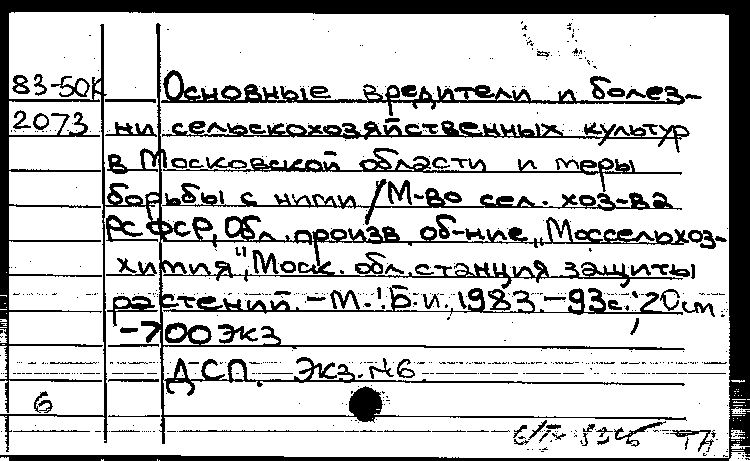 83-50К Основные вредители и болез-
2073 ни сельскохозяйственных культур
в Московской области и меры
борьбы с ними / М-во сел. хоз-ва
РСФСР, Обл. произв. об-ние „Моссельхоз-
химия", Моск. обл. станция защиты
растений. - М.: Б.и., 1983. - 93с.; 20см.
-700 экз
ДСП. Экз. №6.
6